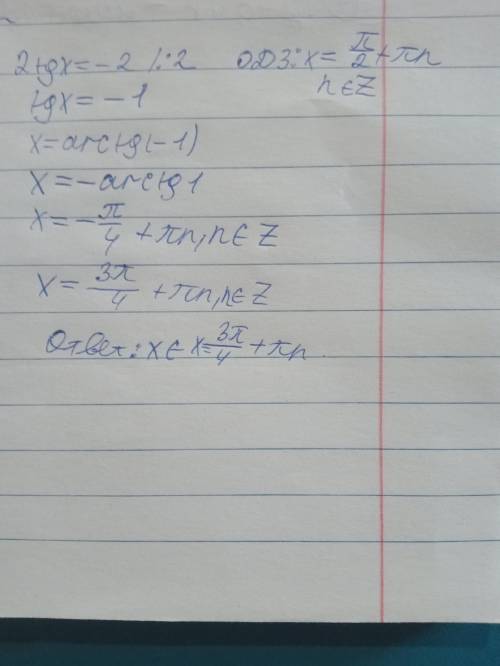 2tgx = -2 |:2 ОДЗ: x = π/2 + πn
n ∈ Z
tgx = -1
x = arctg(-1)
x = -arctg1
x = -π/4 + πn, n ∈ Z
x = 3π/4 + πn, n ∈ Z
Ответ: x ∈ x = 3π/4 + πn.